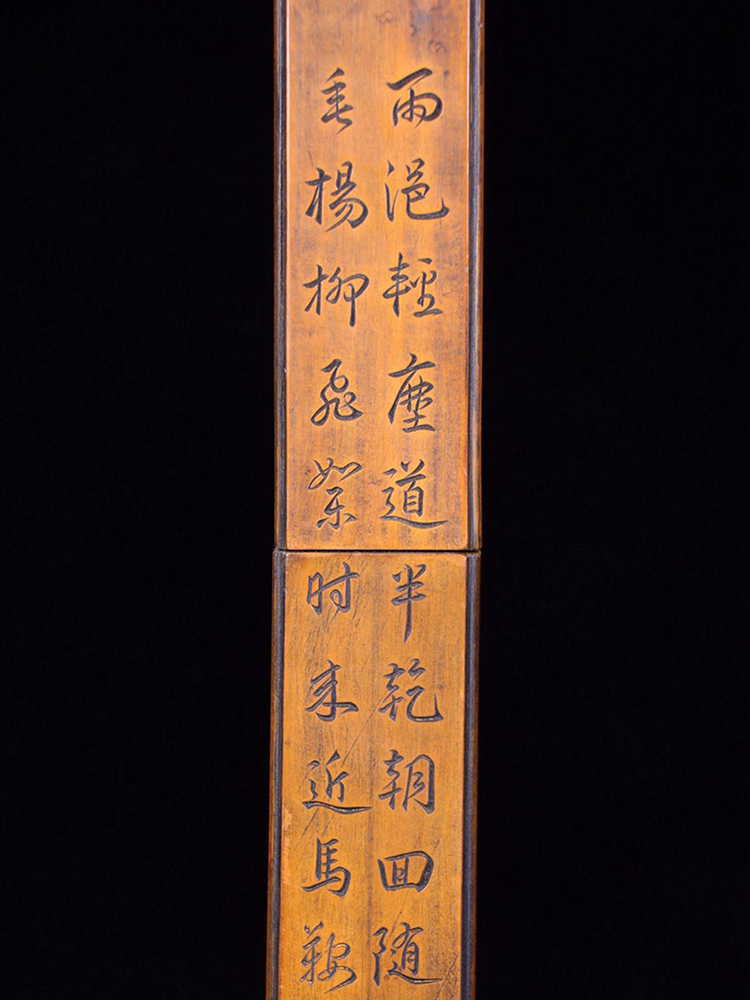 雨浥輕塵道半乾朝囬随
垂楊柳飛絮时来近馬鞍